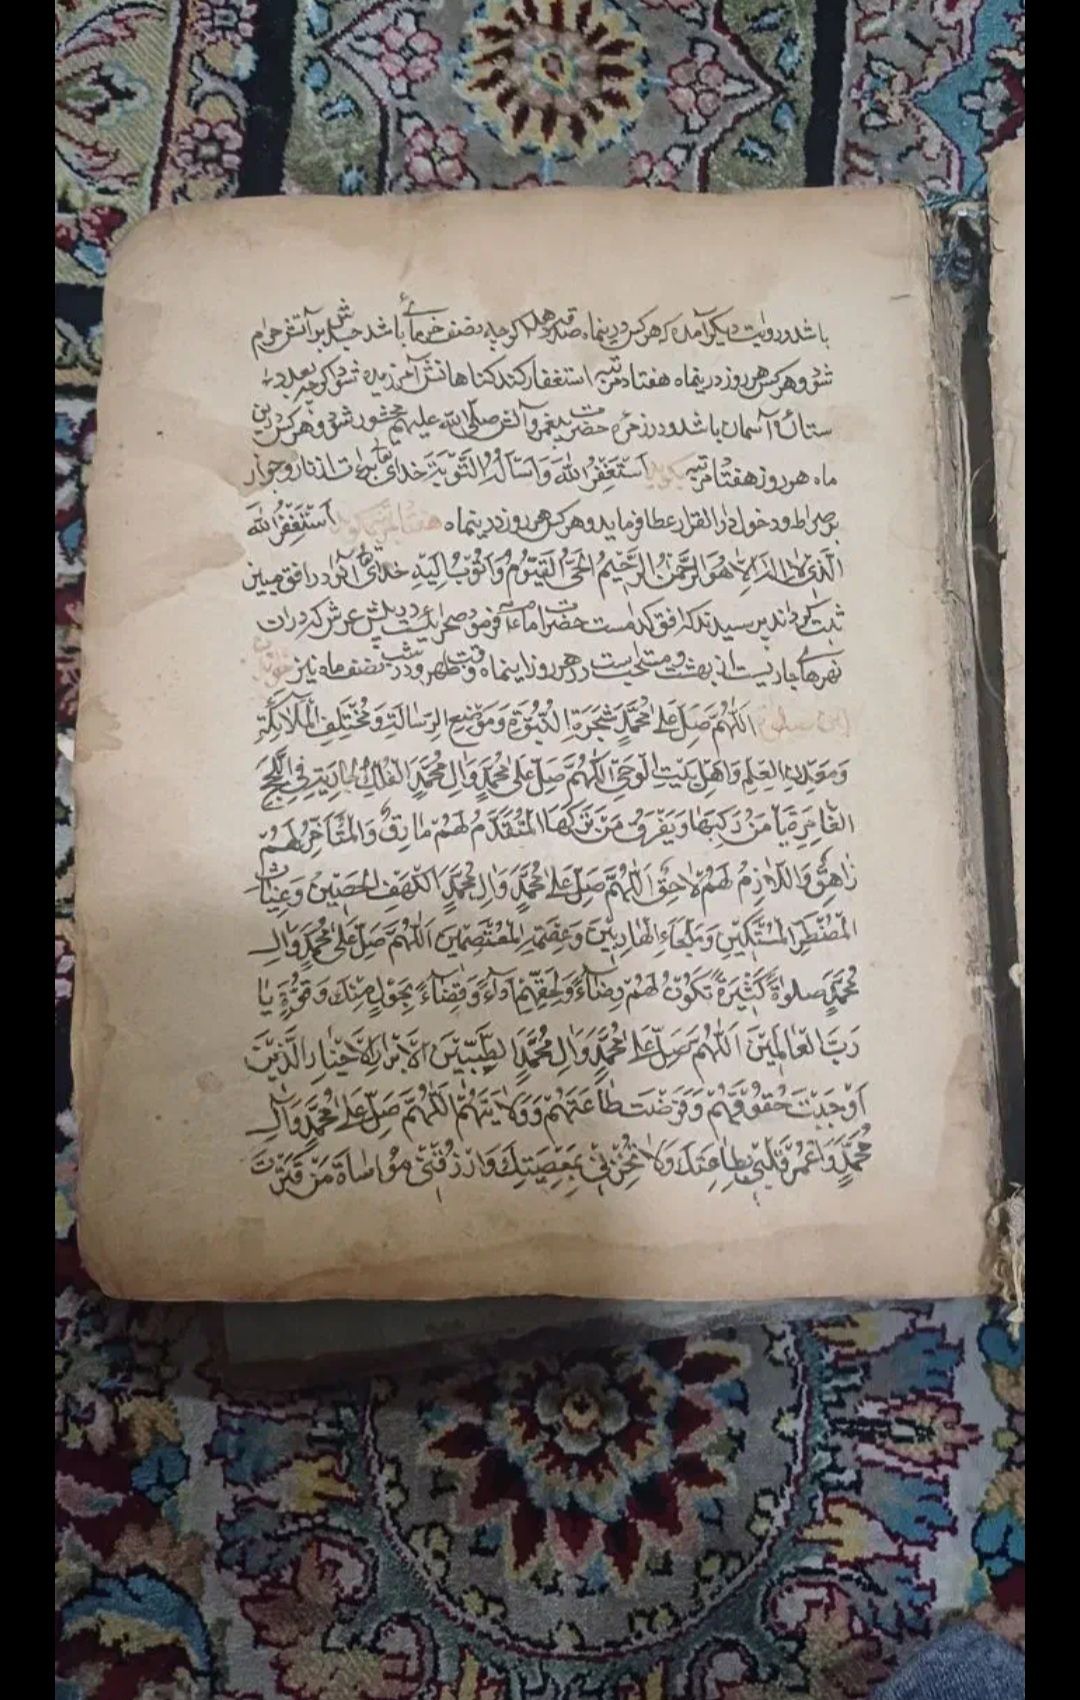 باشد و در روایت دیگر آمده که هر کس درینماه صدقه دهد اگر چه بنصف خرمائی باشد جسدش بر آتش حرام
شود و هر کس هر روز درینماه هفتاد مرتبه استغفار کند کناهانش آمرزیده شود اگر چه بعدد
ستارکان آسمان باشد و در زمره حضرت پیغمبر و آلش صلی الله علیهم محشور شود و هر کس درین
ماه هر روز هفتاد مرتبه بکوید اَسْتَغْفِرُ اللهَ وَ اَسْأَلُهُ التَّوْبَةَ خدای تعالی برات از نار و جواز
بر صراط و دخول دار القرار عطا فرماید و هر کس هر روز درینماه هفتاد مرتبه بکوید اَسْتَغْفِرُ اللهَ
الَّذی لا اِلهَ اِلّا هُوَ الرَّحْمنُ الرَّحیمُ الْحَیُّ الْقَیُّومُ وَ اَتُوبُ اِلَیْهِ خدای تعالی او را در افق مبین
ثبت کرداند پرسیدند که افق کدامست حضرت امام فرمود صحرائیست در پیش عرش که در آن
نهرها جاریست از بهشت و مستحبست در هر روز اینماه وقت ظهر و در شب نصف ماه نیز خواندن
این صلوات اَللّهُمَّ صَلِّ عَلی مُحَمَّدٍ شَجَرَةِ النُّبُوَّةِ وَ مَوْضِعِ الرِّسالَةِ وَ مُخْتَلَفِ الْمَلائِکَةِ
وَ مَعْدِنِ الْعِلْمِ وَ اَهْلِ بَیْتِ الْوَحْیِ اَللّهُمَّ صَلِّ عَلی مُحَمَّدٍ وَ الِ مُحَمَّدٍ اَلْفُلْکِ الْجارِیَةِ فِی اللُّجَجِ
الْغامِرَةِ یَأمَنُ مَنْ رَکِبَها وَ یَغْرَقُ مَنْ تَرَکَهَا الْمُتَقَدِّمُ لَهُمْ مارِقٌ وَ الْمُتَاَخِّرُ لَهُمْ
زاهِقٌ وَ اللّازِمُ لَهُمْ لاحِقٌ اَللّهُمَّ صَلِّ عَلی مُحَمَّدٍ وَ الِ مُحَمَّدٍ اَلْکَهْفِ الْحَصینِ وَ غِیاثِ
الْمُضْطَرِّ الْمُسْتَکینِ وَ مَلْجَاءِ الْهارِبینَ وَ عِصْمَةِ الْمُعْتَصِمینَ اَللّهُمَّ صَلِّ عَلی مُحَمَّدٍ وَ الِ
مُحَمَّدٍ صَلوةً کَثیرَةً تَکُونُ لَهُمْ رِضاءً وَ لِحَقِّهِمْ اَداءً وَ قَضاءً بِحَوْلٍ مِنْکَ وَ قُوَّةٍ یا
رَبَّ الْعالَمینَ اَللّهُمَّ صَلِّ عَلی مُحَمَّدٍ وَ الِ مُحَمَّدٍ اَلطَّیِّبینَ الْاَبْرارِ الْاَخْیارِ الَّذینَ
اَوْجَبْتَ حُقُوقَهُمْ وَ فَرَضْتَ طاعَتَهُمْ وَ وِلایَتَهُمْ اَللّهُمَّ صَلِّ عَلی مُحَمَّدٍ وَ الِ
مُحَمَّدٍ وَ اعْمُرْ قَلْبی بِطاعَتِکَ وَ لا تُخْزِنی بِمَعْصِیَتِکَ وَ ارْزُقْنی مُواساةَ مَنْ قَتَّرْتَ